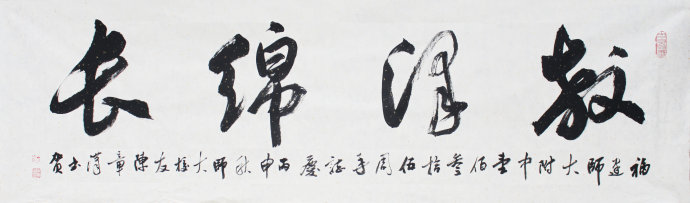 教泽绵长
福建师大附中壹佰叁拾伍周年誌慶丙申秋师大校友陳章漢书贺